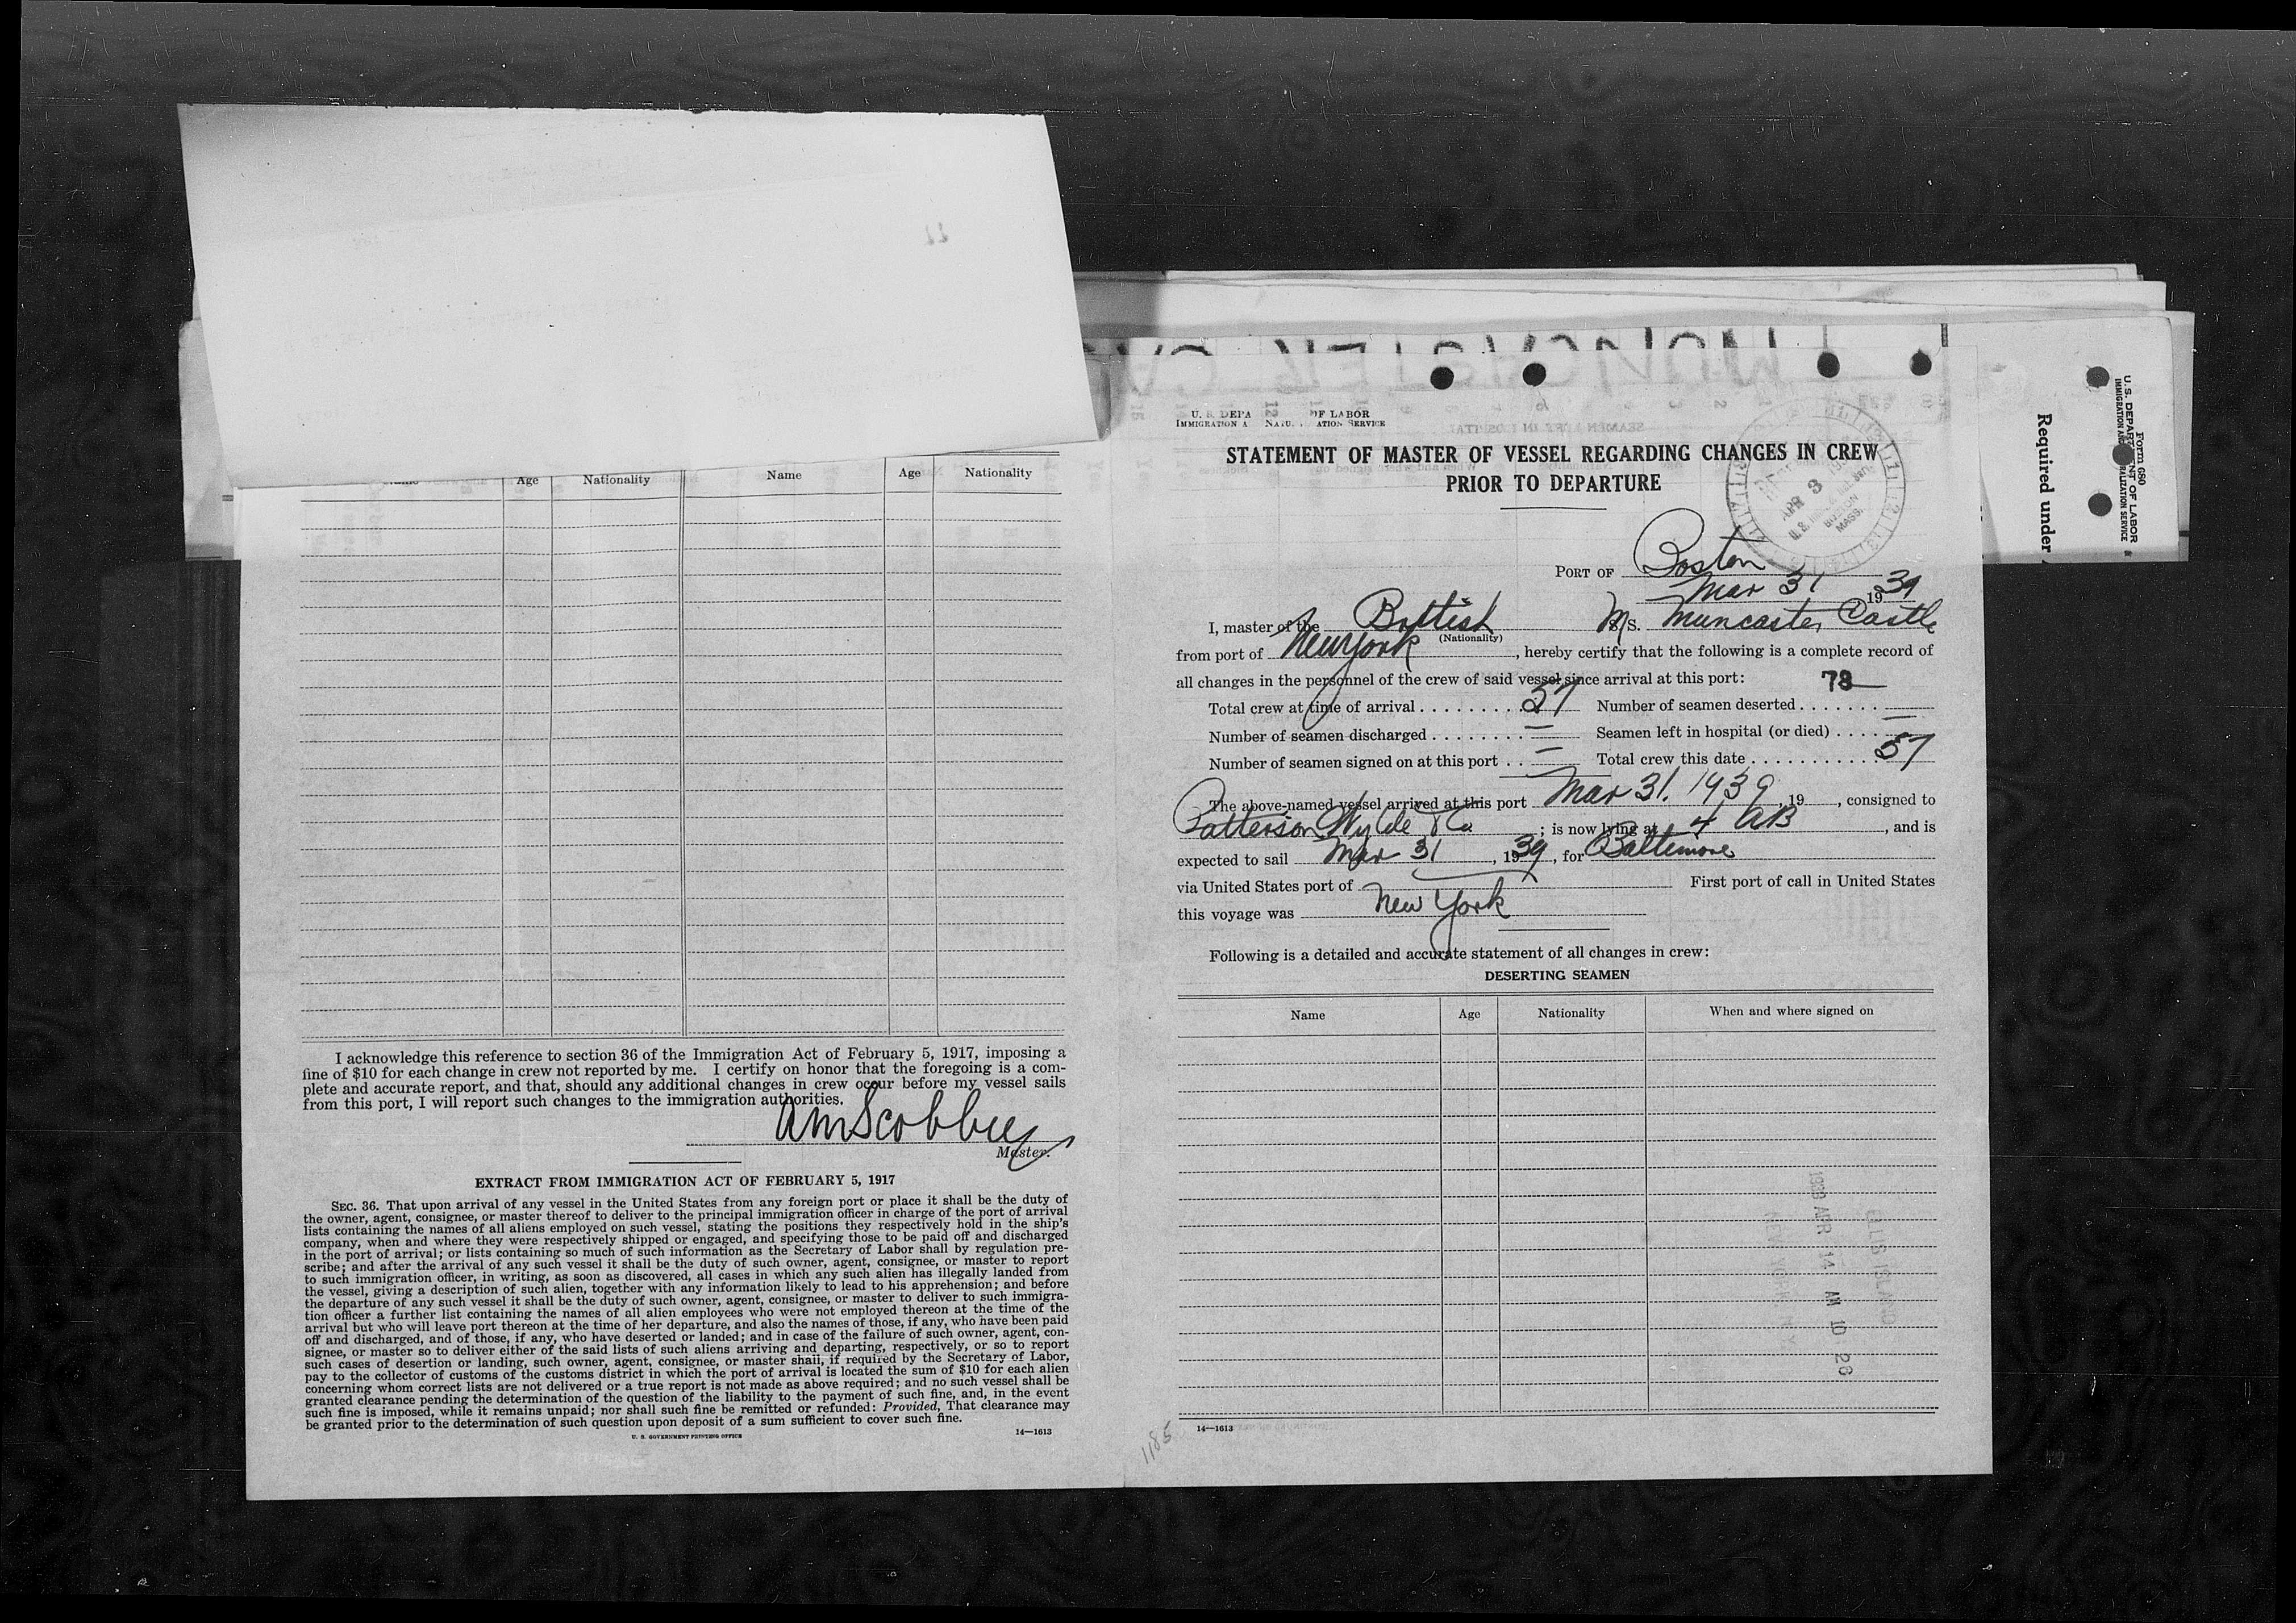 Age Nationality Name Age Nationality
I acknowledge this reference to section 36 of the Immigration Act of February 5, 1917, imposing a
fine of $10 for each change in crew not reported by me. I certify on honor that the foregoing is a com-
plete and accurate report, and that, should any additional changes in crew occur before my vessel sails
from this port, I will report such changes to the immigration authorities.
AMScobbie
Master.
EXTRACT FROM IMMIGRATION ACT OF FEBRUARY 5, 1917
SEC. 36. That upon arrival of any vessel in the United States from any foreign port or place it shall be the duty of
the owner, agent, consignee, or master thereof to deliver to the principal immigration officer in charge of the port of arrival
lists containing the names of all aliens employed on such vessel, stating the positions they respectively hold in the ship's
company, when and where they were respectively shipped or engaged, and specifying those to be paid off and discharged
in the port of arrival; or lists containing so much of such information as the Secretary of Labor shall by regulation pre-
scribe; and after the arrival of any such vessel it shall be the duty of such owner, agent, consignee, or master to report
to such immigration officer, in writing, as soon as discovered, all cases in which any such alien has illegally landed from
the vessel, giving a description of such alien, together with any information likely to lead to his apprehension; and before
the departure of any such vessel it shall be the duty of such owner, agent, consignee, or master to deliver to such immigra-
tion officer a further list containing the names of all alien employees who were not employed thereon at the time of the
arrival but who will leave port thereon at the time of her departure, and also the names of those, if any, who have been paid
off and discharged, and of those, if any, who have deserted or landed; and in case of the failure of such owner, agent, con-
signee, or master so to deliver either of the said lists of such aliens arriving and departing, respectively, or so to report
such cases of desertion or landing, such owner, agent, consignee, or master shall, if required by the Secretary of Labor,
pay to the collector of customs of the customs district in which the port of arrival is located the sum of $10 for each alien
concerning whom correct lists are not delivered or a true report is not made as above required; and no such vessel shall be
granted clearance pending the determination of the question of the liability to the payment of such fine, and, in the event
such fine is imposed, while it remains unpaid; nor shall such fine be remitted or refunded: Provided, That clearance may
be granted prior to the determination of such question upon deposit of a sum sufficient to cover such fine.
U. S. GOVERNMENT PRINTING OFFICE 14—1613
OF LABOR
IMMIGRATION SERVICE
STATEMENT OF MASTER OF VESSEL REGARDING CHANGES IN CREW
PRIOR TO DEPARTURE
APR 3
MASS.
PORT OF Boston
Mar 31 1939
I, master of the British M/S. Muncaster Castle
(Nationality)
from port of New York, hereby certify that the following is a complete record of
all changes in the personnel of the crew of said vessel since arrival at this port: 78
Total crew at time of arrival . . . . . . . . . 57 Number of seamen deserted . . . . . . . —
Number of seamen discharged . . . . . . . . — Seamen left in hospital (or died) . . . .
Number of seamen signed on at this port . . — Total crew this date . . . . . . . . . . . 57
The above-named vessel arrived at this port Mar 31. 1939, 19 , consigned to
Patterson Wylde & Co ; is now lying at 4 AB , and is
expected to sail Mar 31 , 1939, for Baltimore
via United States port of First port of call in United States
this voyage was New York
Following is a detailed and accurate statement of all changes in crew:
DESERTING SEAMEN
Name Age Nationality When and where signed on
ELLIS ISLAND
1939 APR 14 AM 10 28
NEW YORK N.Y.
1185
14—1613
Required under
Form 680
U. S. DEPARTMENT OF LABOR